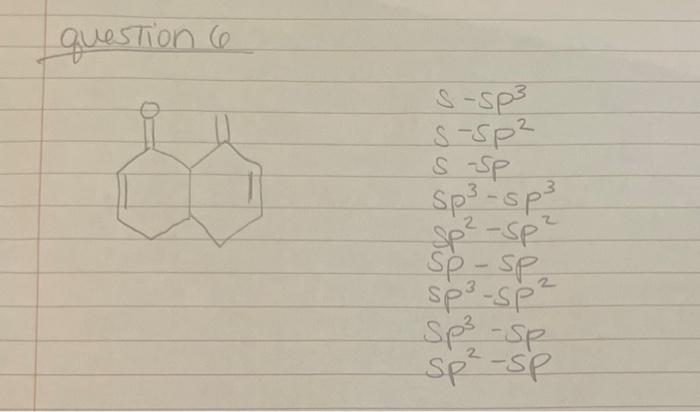 question 6
O
s-sp³
s-sp²
s-sp
sp³-sp³
sp²-sp²
sp-sp
sp³-sp²
sp³-sp
sp²-sp